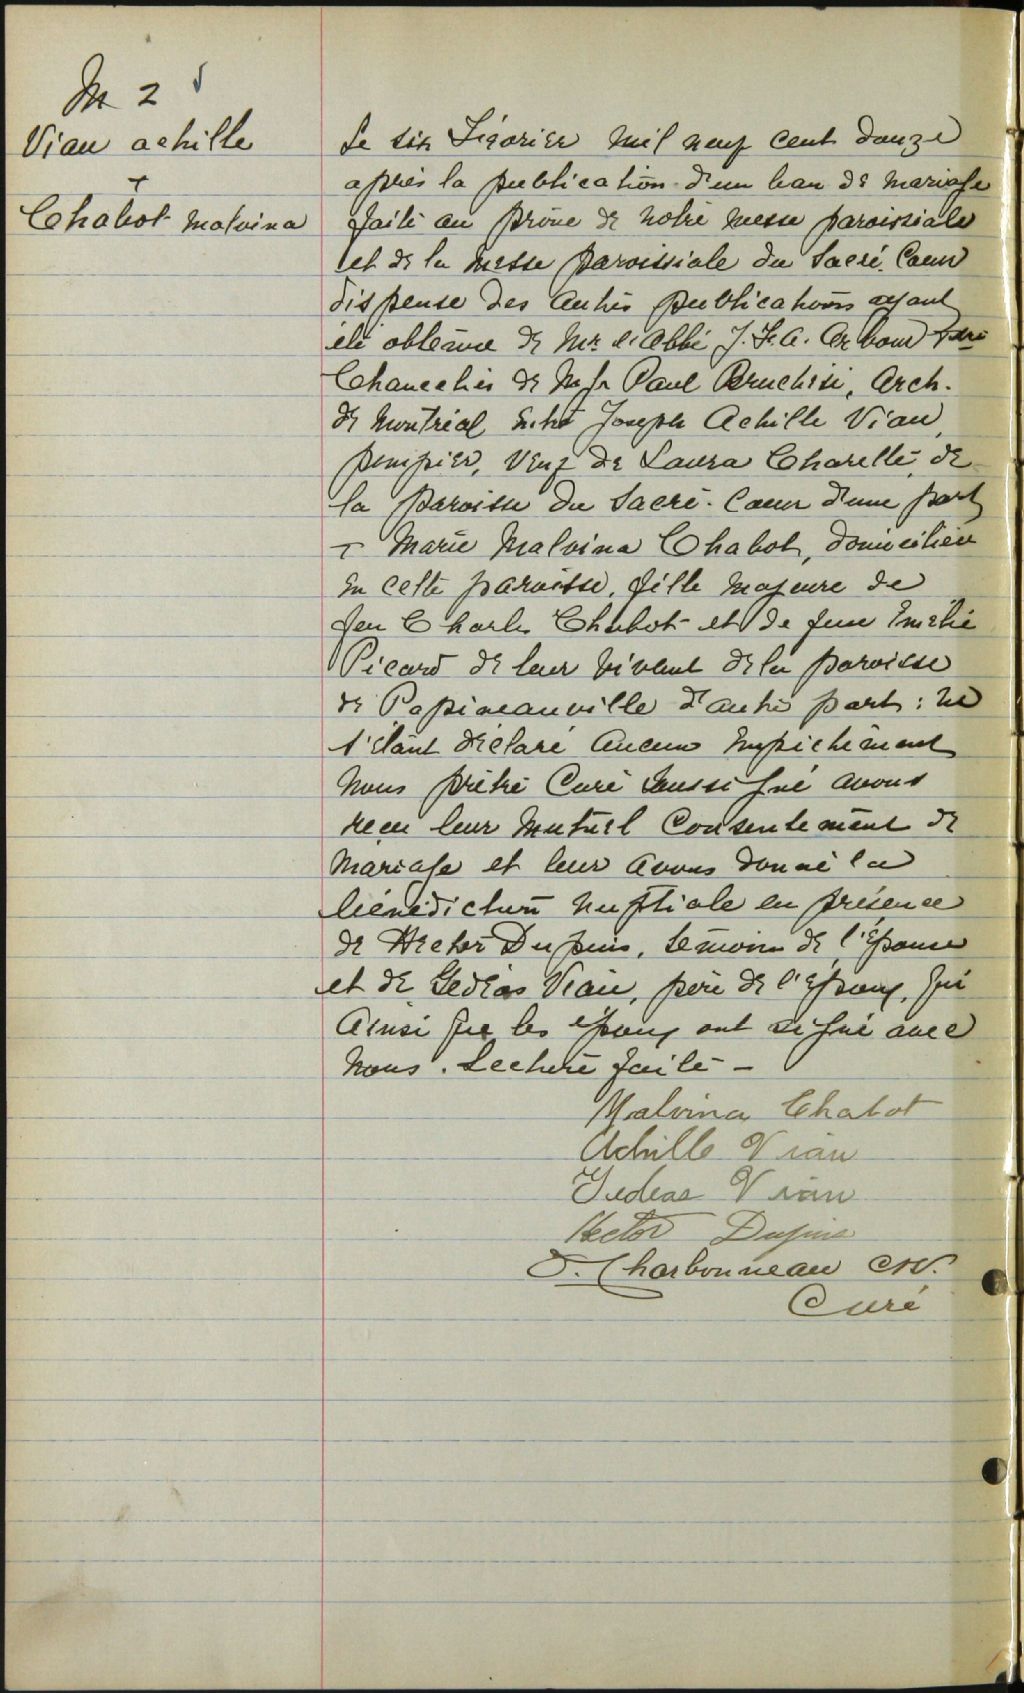 M 2
Viau achille
+
Chabot Malvina
Le six Février mil neuf cent douze
après la publication d'un ban de mariage
faite au prône de notre messe paroissiale
et de la messe paroissiale du Sacré. Cœur
dispense des autres publications ayant
été obtenue de Mr. l'Abbé J. F. A. Arbour
Chancelier de Mgr Paul Bruchési, Arch.
de Montréal entre Joseph Achille Viau,
pompier, veuf de Laura Charette, de
la paroisse du Sacré-Cœur d'une part
+ Marie Malvina Chabot, domiciliée
en cette paroisse, fille majeure de
feu Charles Chabot et de feue Emélie
Picard de leur vivant de la paroisse
de Papineauville d'autre part : ne
s'étant déclaré aucun empêchement
nous prêtre Curé soussigné avons
reçu leur mutuel consentement de
mariage et leur avons donné la
bénédiction nuptiale en présence
de Hector Dupuis, témoin de l'épouse
et de Gédéas Viau, père de l'époux, qui
ainsi que les époux ont signé avec
nous. Lecture faite -
Malvina Chabot
Achille Viau
Gedeas Viau
Hector Dupuis
Charbonneau
Curé